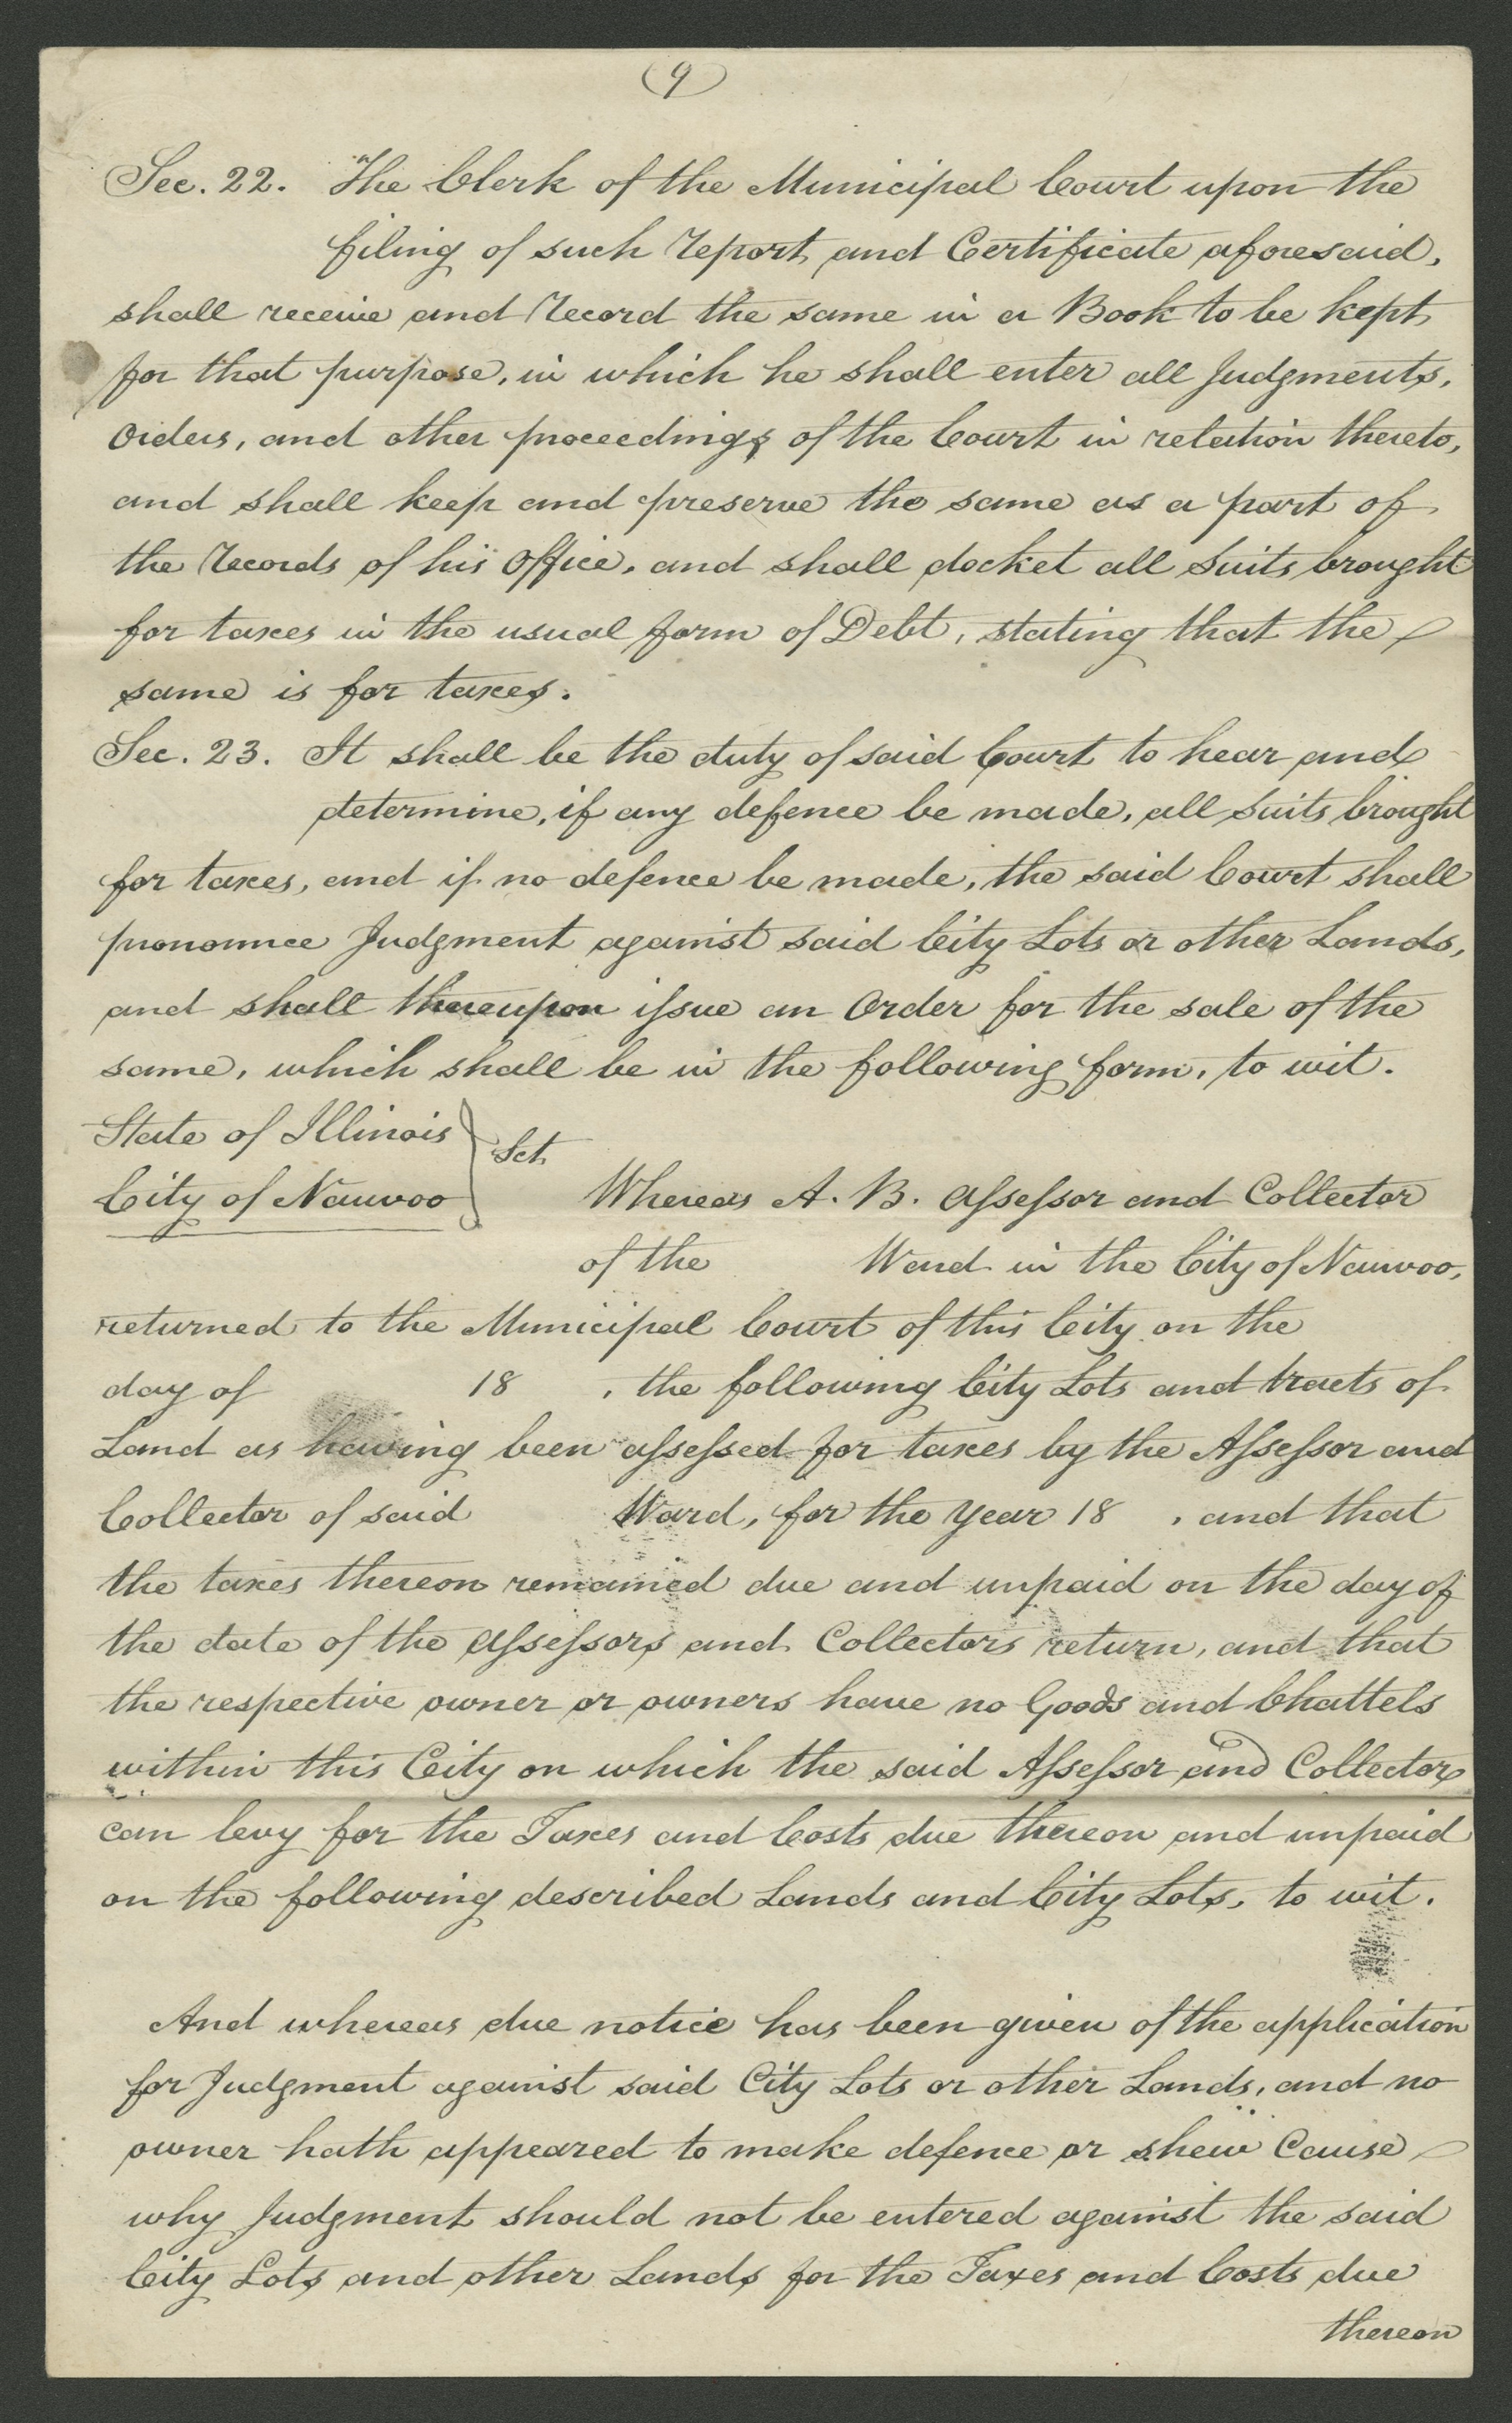 (9)
Sec. 22. The Clerk of the Municipal Court upon the
filing of such report and Certificate aforesaid,
shall receive and record the same in a Book to be kept
for that purpose, in which he shall enter all Judgments,
Orders, and other proceedings of the Court in relation thereto,
and shall keep and preserve the same as a part of
the records of his Office, and shall docket all Suits brought
for taxes in the usual form of Debt, stating that the
same is for taxes.
Sec. 23. It shall be the duty of said Court to hear and
determine, if any defence be made, all suits brought
for taxes, and if no defence be made, the said Court shall
pronounce Judgment against said City Lots or other Lands,
and shall thereupon issue an Order for the sale of the
same, which shall be in the following form, to wit.
State of Illinois } Sct.
City of Nauvoo Whereas A. B. Assessor and Collector
of the Ward in the City of Nauvoo,
returned to the Municipal Court of this City on the
day of 18 , the following City Lots and tracts of
Land as having been assessed for taxes by the Assessor and
Collector of said Ward, for the year 18 , and that
the taxes thereon remained due and unpaid on the day of
the date of the Assessors and Collectors return, and that
the respective owner or owners have no Goods and Chattels
within this City on which the said Assessor and Collector
can levy for the Taxes and Costs due thereon and unpaid
on the following described Lands and City Lots, to wit.
And whereas due notice has been given of the application
for Judgment against said City Lots or other Lands, and no
owner hath appeared to make defence or shew Cause
why Judgment should not be entered against the said
City Lots and other Lands for the Taxes and Costs due
thereon